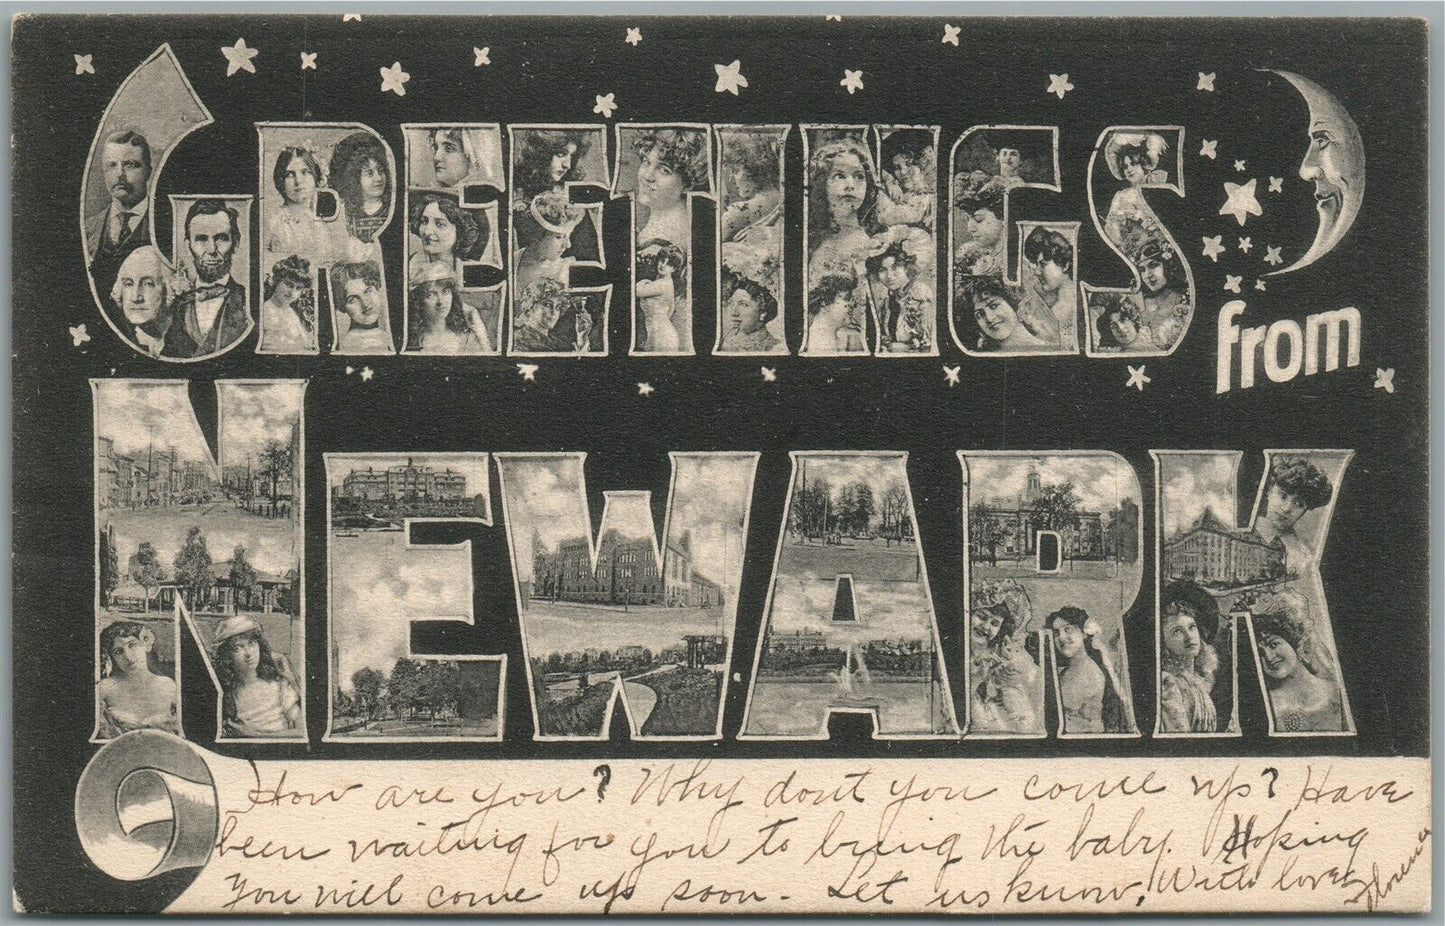 GREETINGS
from
NEWARK
How are you? Why dont you come up? Have
been waiting for you to bring the baby. Hoping
You will come up soon. Let us know, With love,
Florence